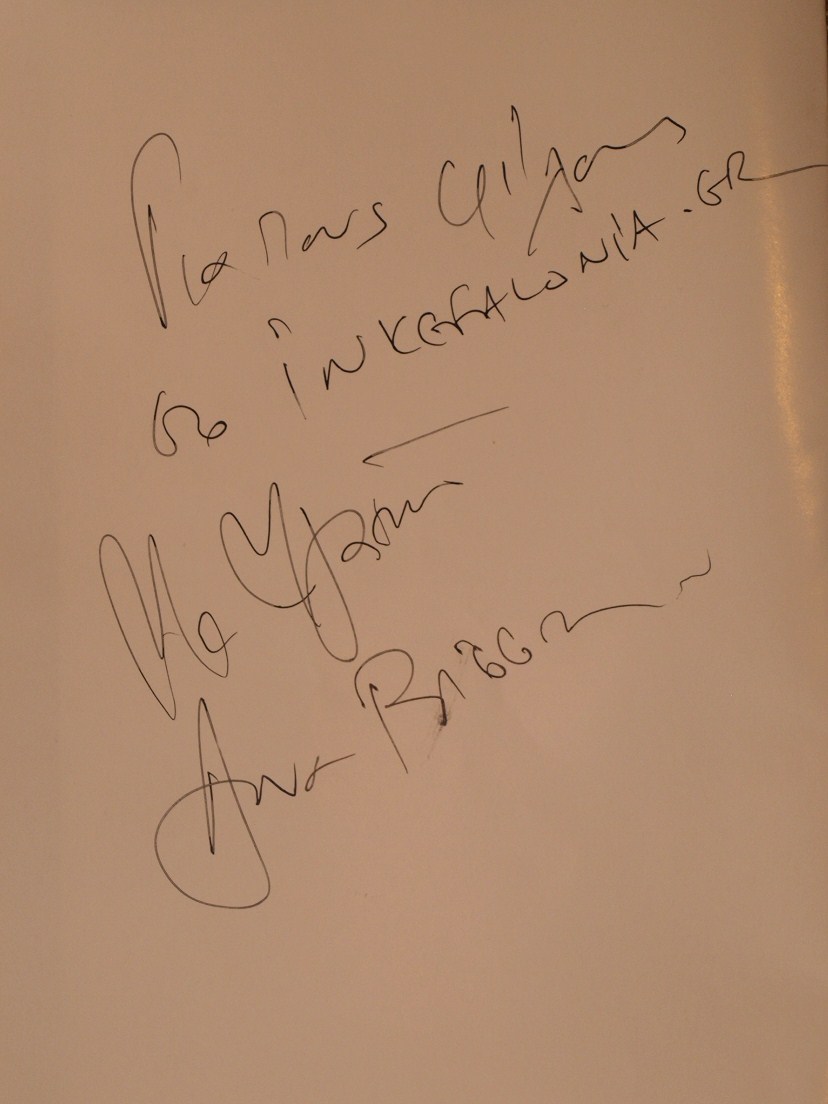 Για τους φίλους
το inKEFALONIA.GR
Με αγάπη
Άννα Βίσση